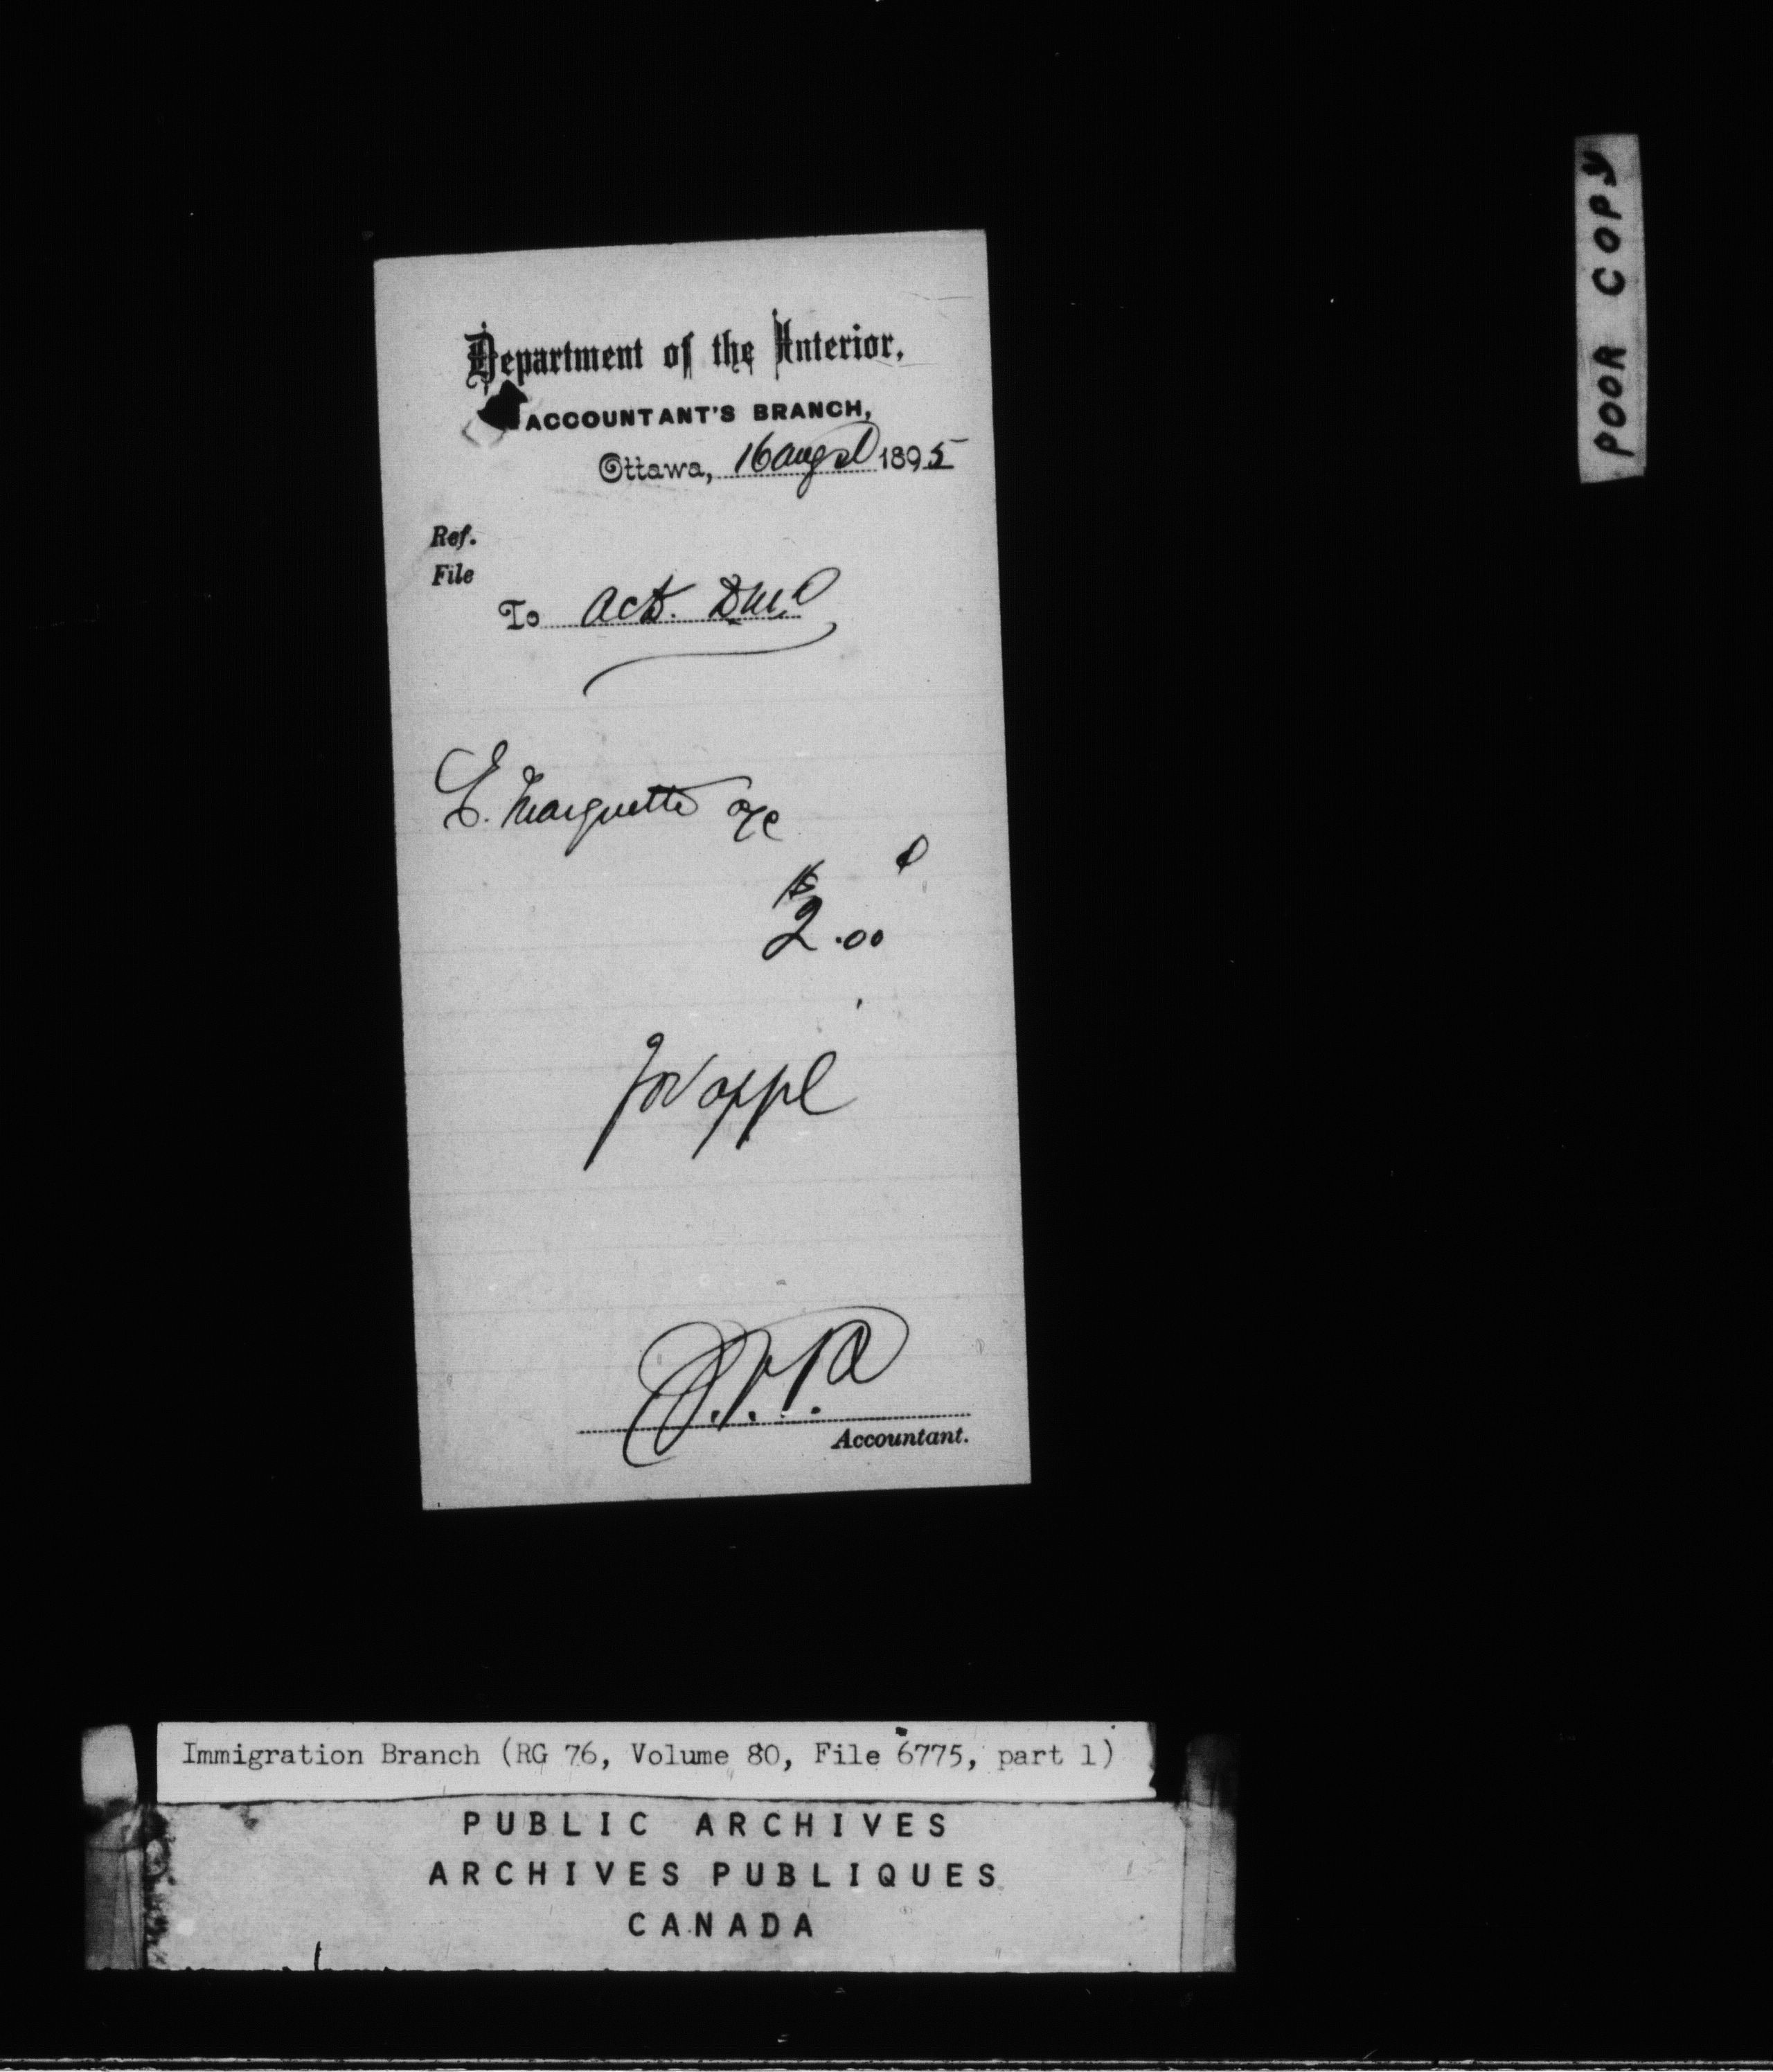 Department of the Interior,
ACCOUNTANT'S BRANCH,
Ottawa, 16 Augst 1895
Ref.
File
To Act.
E. Marquette a/c
$
2.00
for appl
Accountant.
POOR COPY
Immigration Branch (RG 76, Volume 80, File 6775, part 1)
PUBLIC ARCHIVES
ARCHIVES PUBLIQUES
CANADA